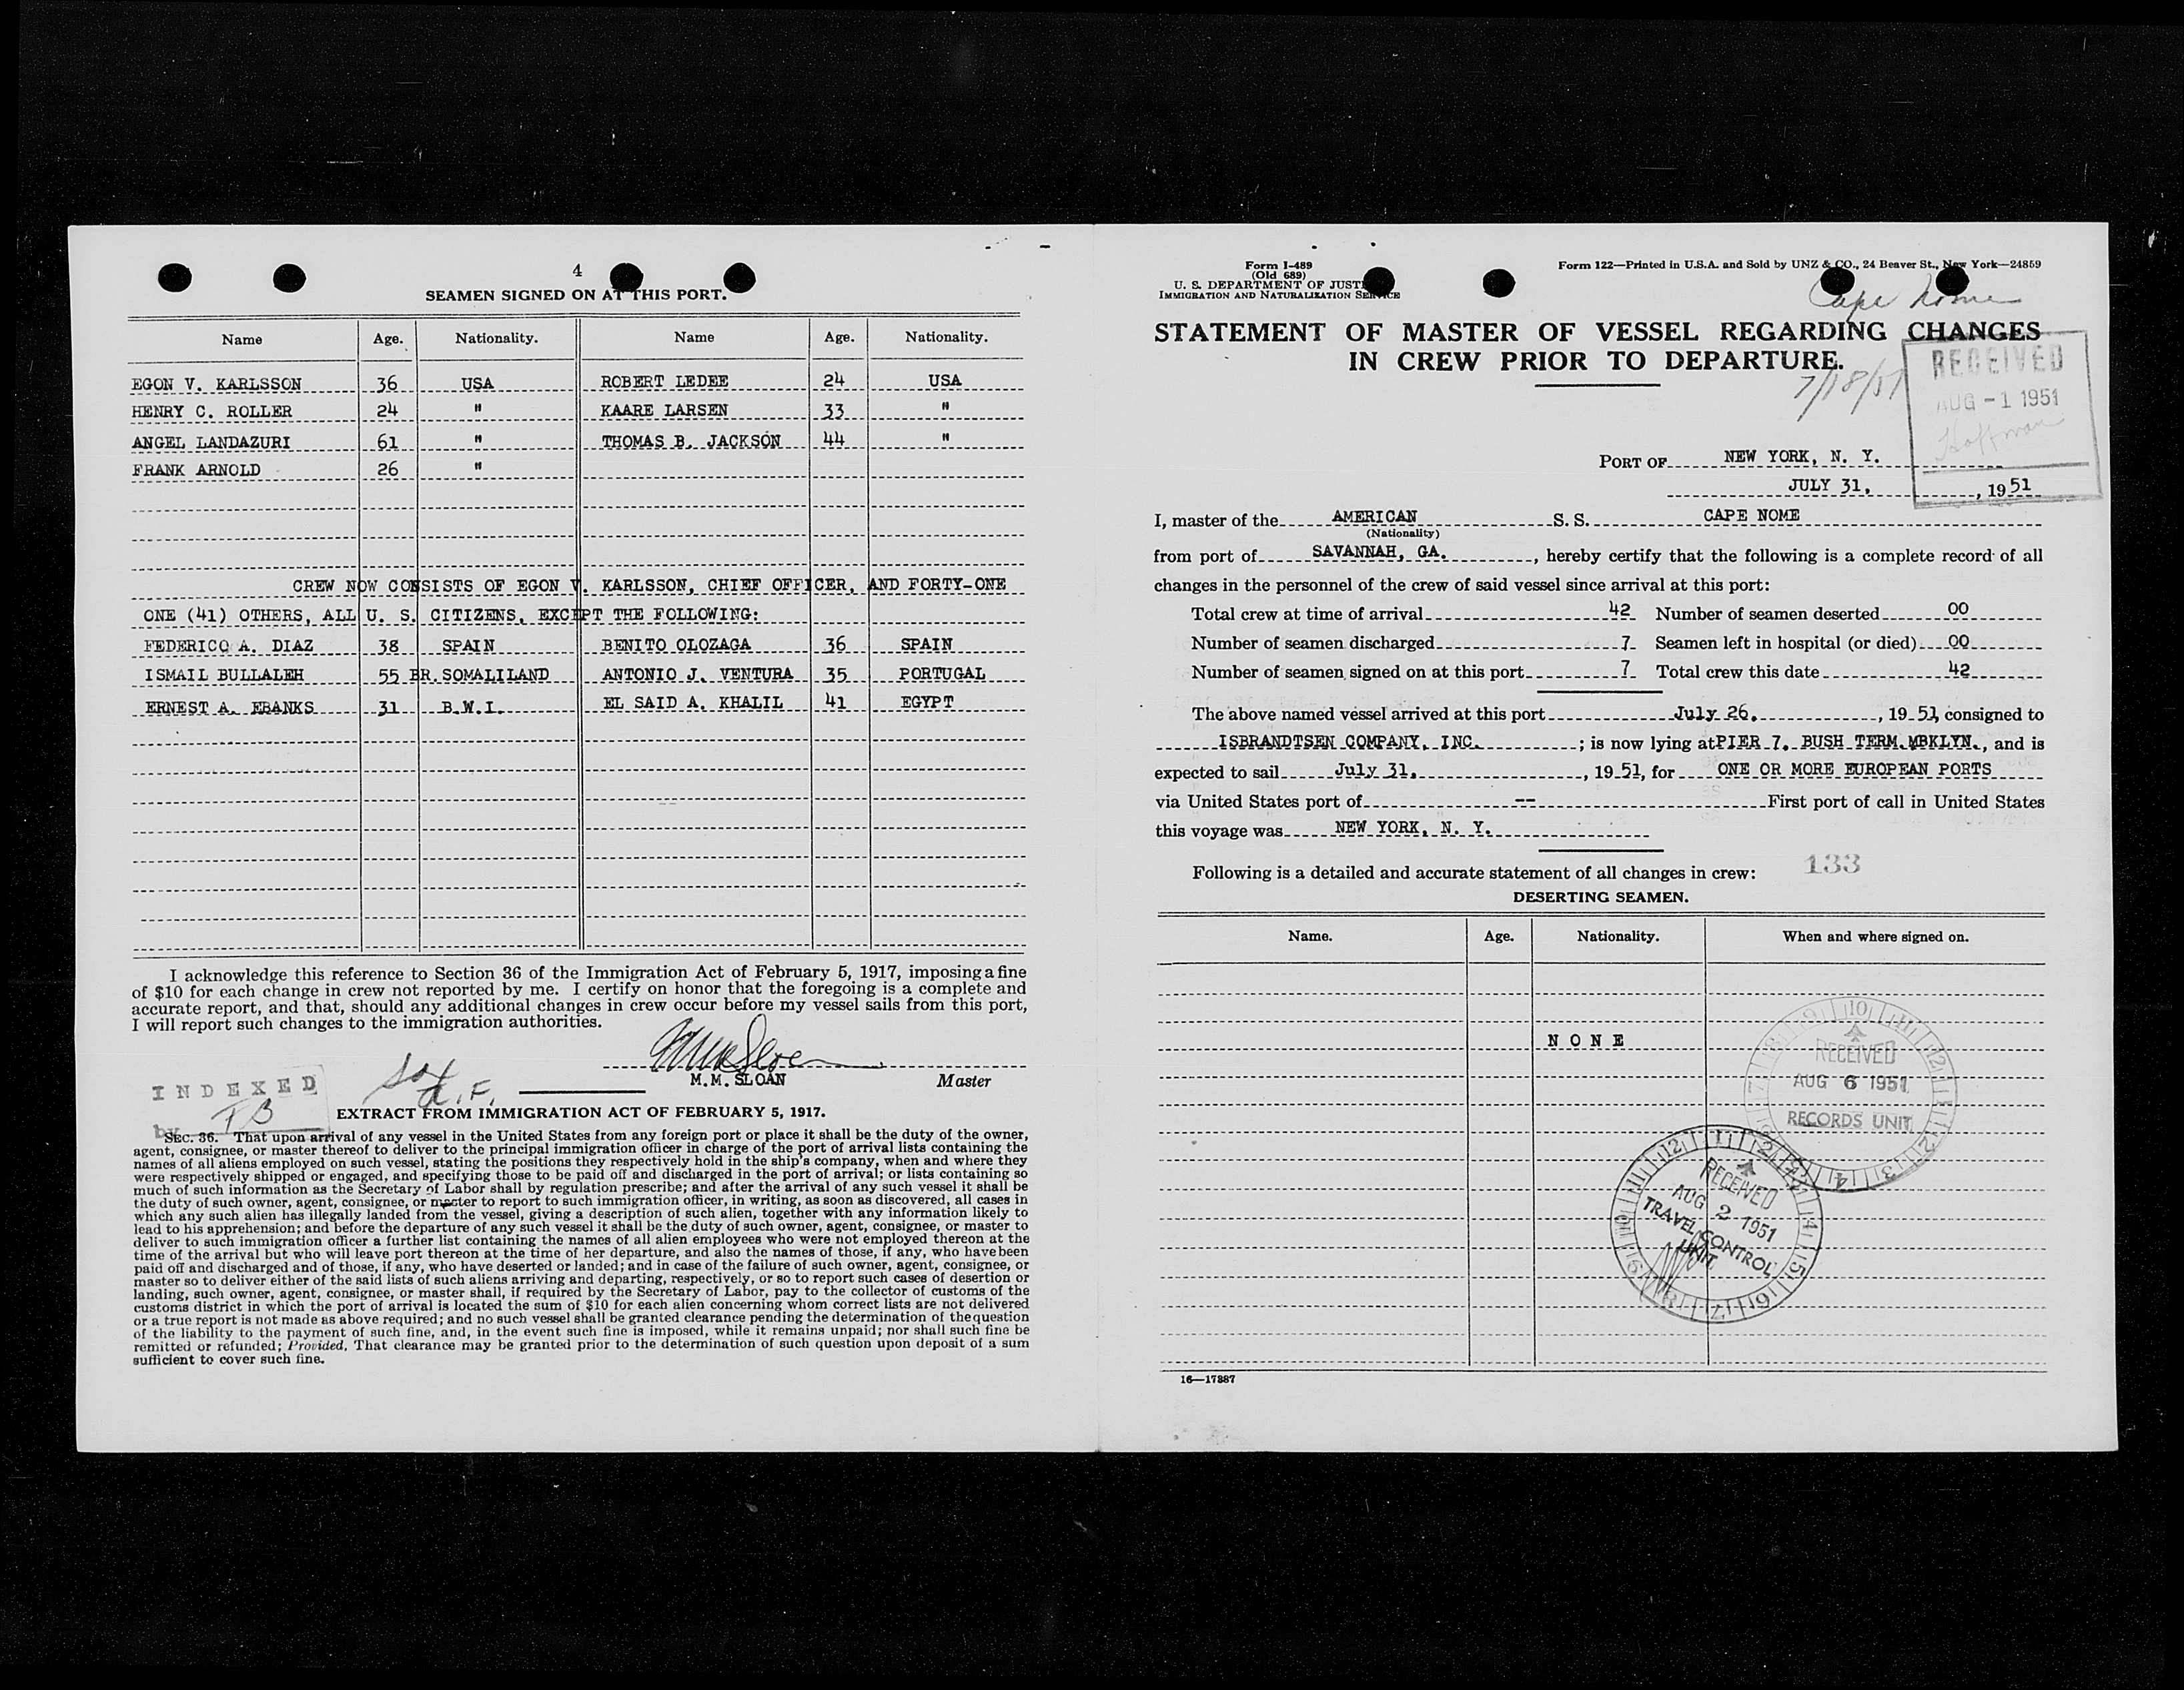 4
SEAMEN SIGNED ON AT THIS PORT.
Name Age. Nationality. Name Age. Nationality.
EGON V. KARLSSON 36 USA ROBERT LEDEE 24 USA
HENRY C. ROLLER 24 " KAARE LARSEN 33 "
ANGEL LANDAZURI 61 " THOMAS B. JACKSON 44 "
FRANK ARNOLD 26 "
CREW NOW CONSISTS OF EGON V. KARLSSON, CHIEF OFFICER, AND FORTY-ONE
ONE (41) OTHERS, ALL U. S. CITIZENS, EXCEPT THE FOLLOWING:
FEDERICO A. DIAZ 38 SPAIN BENITO OLOZAGA 36 SPAIN
ISMAIL BULLALEH 55 BR. SOMALILAND ANTONIO J. VENTURA 35 PORTUGAL
ERNEST A. EBANKS 31 B.W.I. EL SAID A. KHALIL 41 EGYPT
I acknowledge this reference to Section 36 of the Immigration Act of February 5, 1917, imposing a fine
of $10 for each change in crew not reported by me. I certify on honor that the foregoing is a complete and
accurate report, and that, should any additional changes in crew occur before my vessel sails from this port,
I will report such changes to the immigration authorities.
M.M. SLOAN Master
INDEXED
by TB
EXTRACT FROM IMMIGRATION ACT OF FEBRUARY 5, 1917.
SEC. 36. That upon arrival of any vessel in the United States from any foreign port or place it shall be the duty of the owner,
agent, consignee, or master thereof to deliver to the principal immigration officer in charge of the port of arrival lists containing the
names of all aliens employed on such vessel, stating the positions they respectively hold in the ship's company, when and where they
were respectively shipped or engaged, and specifying those to be paid off and discharged in the port of arrival; or lists containing so
much of such information as the Secretary of Labor shall by regulation prescribe; and after the arrival of any such vessel it shall be
the duty of such owner, agent, consignee, or master to report to such immigration officer, in writing, as soon as discovered, all cases in
which any such alien has illegally landed from the vessel, giving a description of such alien, together with any information likely to
lead to his apprehension; and before the departure of any such vessel it shall be the duty of such owner, agent, consignee, or master to
deliver to such immigration officer a further list containing the names of all alien employees who were not employed thereon at the
time of the arrival but who will leave port thereon at the time of her departure, and also the names of those, if any, who have been
paid off and discharged and of those, if any, who have deserted or landed; and in case of the failure of such owner, agent, consignee, or
master so to deliver either of the said lists of such aliens arriving and departing, respectively, or so to report such cases of desertion or
landing, such owner, agent, consignee, or master shall, if required by the Secretary of Labor, pay to the collector of customs of the
customs district in which the port of arrival is located the sum of $10 for each alien concerning whom correct lists are not delivered
or a true report is not made as above required; and no such vessel shall be granted clearance pending the determination of the question
of the liability to the payment of such fine, and, in the event such fine is imposed, while it remains unpaid; nor shall such fine be
remitted or refunded; Provided, That clearance may be granted prior to the determination of such question upon deposit of a sum
sufficient to cover such fine.
Form I-489
(Old 689)
U. S. DEPARTMENT OF JUSTICE
IMMIGRATION AND NATURALIZATION SERVICE
Form 122—Printed in U.S.A. and Sold by UNZ & CO., 24 Beaver St., New York—24859
Cape Nome
STATEMENT OF MASTER OF VESSEL REGARDING CHANGES
IN CREW PRIOR TO DEPARTURE.
RECEIVED
AUG -1 1951
Hoffman
PORT OF NEW YORK, N. Y.
JULY 31, , 1951
I, master of the AMERICAN S. S. CAPE NOME
(Nationality)
from port of SAVANNAH, GA. , hereby certify that the following is a complete record of all
changes in the personnel of the crew of said vessel since arrival at this port:
Total crew at time of arrival 42 Number of seamen deserted 00
Number of seamen discharged 7 Seamen left in hospital (or died) 00
Number of seamen signed on at this port 7 Total crew this date 42
The above named vessel arrived at this port July 26, , 1951, consigned to
ISBRANDTSEN COMPANY, INC. ; is now lying at PIER 7, BUSH TERM. BKLYN., and is
expected to sail July 31, , 1951, for ONE OR MORE EUROPEAN PORTS
via United States port of -- First port of call in United States
this voyage was NEW YORK, N. Y.
133
Following is a detailed and accurate statement of all changes in crew:
DESERTING SEAMEN.
Name. Age. Nationality. When and where signed on.
NONE
RECEIVED
AUG 6 1951
RECORDS UNIT
RECEIVED
AUG 2 1951
TRAVEL CONTROL
UNIT
16—17887